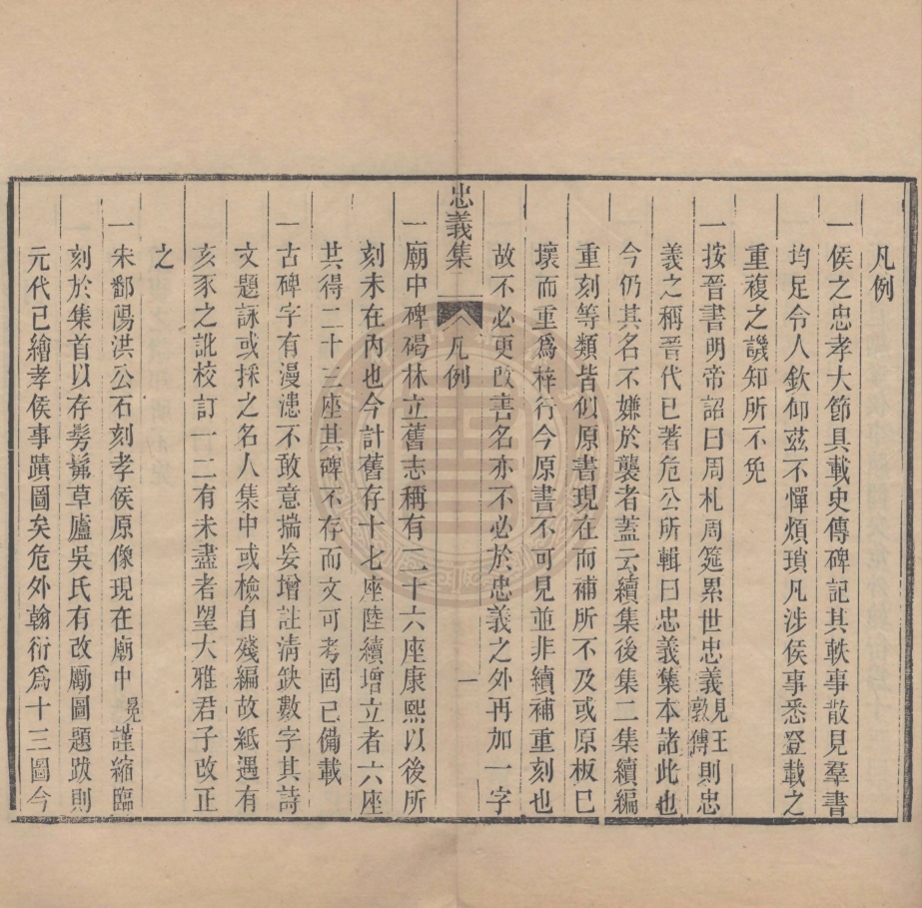 凡例
一侯之忠孝大節具載史傳碑記其軼事散見羣書
均足令人欽仰茲不憚煩瑣凡涉侯事悉登載之
重複之譏知所不免
一按晉書明帝詔曰周札周筵累世忠義見王敦傳則忠
義之稱晉代已著危公所輯曰忠義集本諸此也
今仍其名不嫌於襲者蓋云續集後集二集續編
重刻等類皆似原書現在而補所不及或原板已
壞而重爲梓行今原書不可見並非續補重刻也
故不必更改書名亦不必於忠義之外再加一字
忠義集 凡例 一
一廟中碑碣林立舊志稱有二十六座康熙以後所
刻未在內也今計舊存十七座陸續增立者六座
共得二十三座其碑不存而文可考固已備載
一古碑字有漫漶不敢意揣妄增註淸缺數字其詩
文題詠或採之名人集中或檢自殘編故紙遇有
亥豕之訛校訂一二有未盡者望大雅君子改正
之
一宋鄱陽洪公石刻孝侯原像現在廟中晃謹縮臨
刻於集首以存髣髴草廬吳氏有改勵圖題跋則
元代已繪孝侯事蹟圖矣危外翰衍爲十三圖今